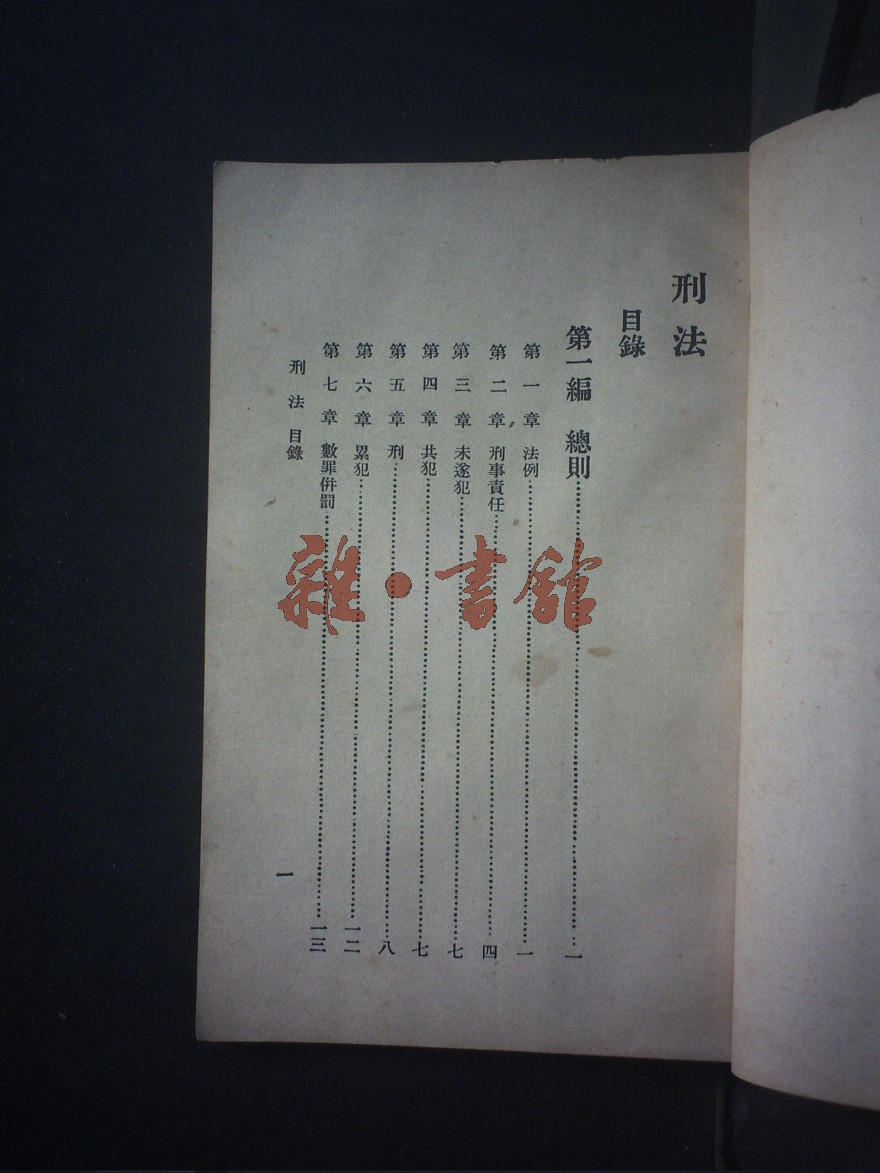 刑法
目錄
第一編 總則……一
第一章 法例……一
第二章 刑事責任……四
第三章 未遂犯……七
第四章 共犯……七
第五章 刑……八
第六章 累犯……一二
第七章 數罪併罰……一三
刑法 目錄 一
雜·書館